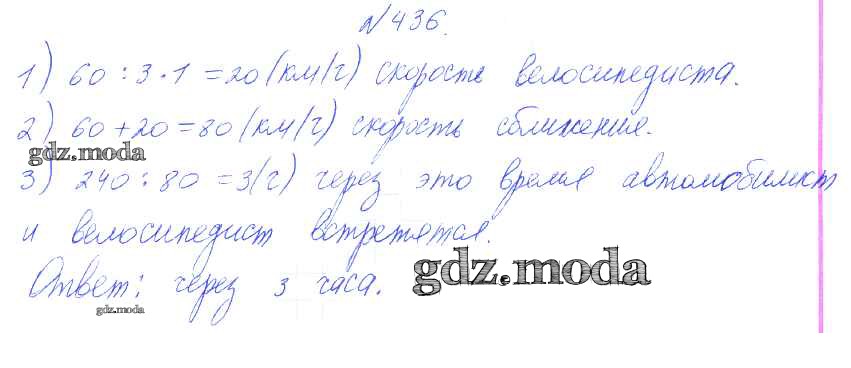 №436.
1) 60 : 3 · 1 = 20 (км/г) скорость велосипедиста.
2) 60 + 20 = 80 (км/г) скорость сближения.
gdz.moda
3) 240 : 80 = 3 (г) через это время автомобилист
и велосипедист встретятся.
gdz.moda
Ответ: через 3 часа.
gdz.moda